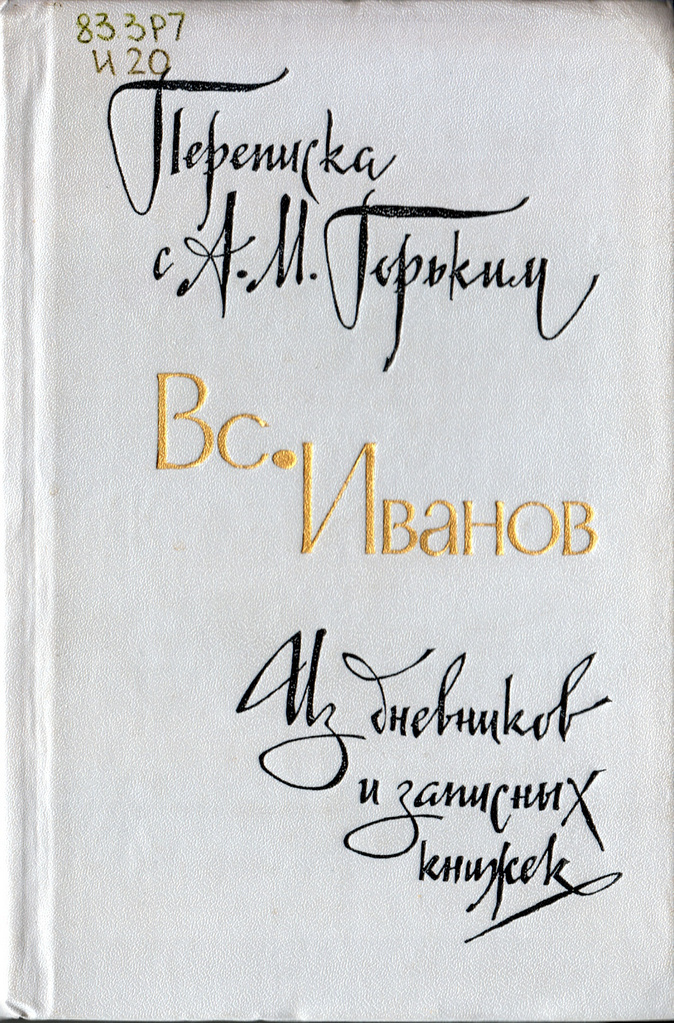 83 3Р7
И 20
Переписка
с А. М. Горьким
Вс. Иванов
Из дневников
и записных
книжек